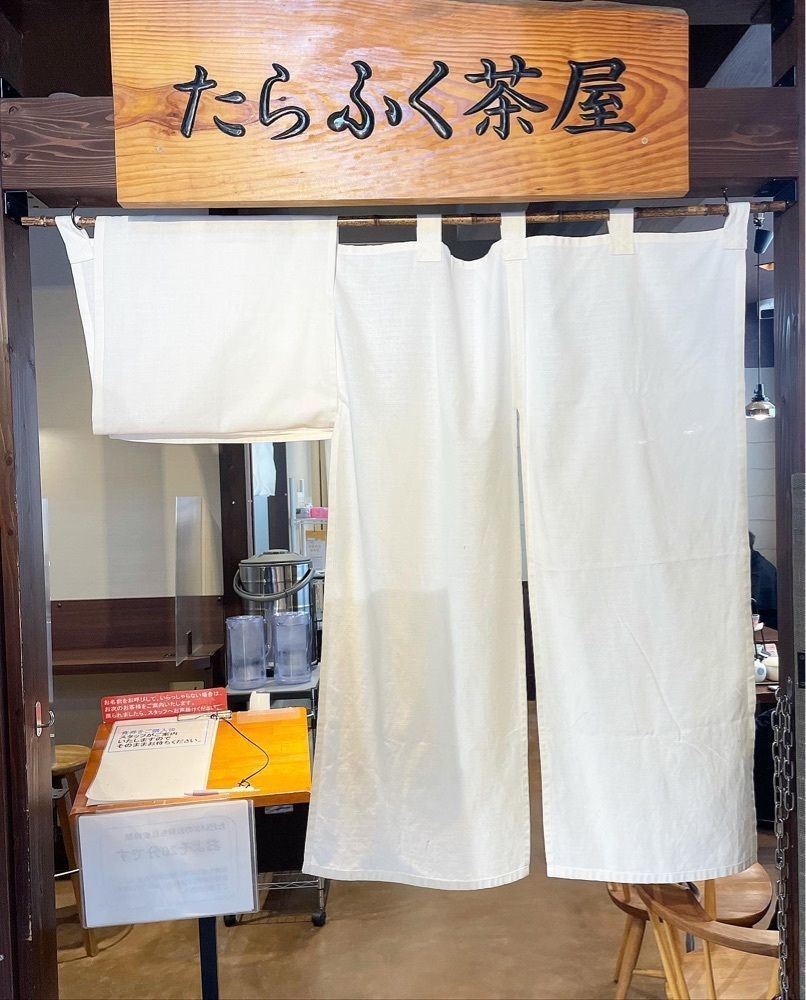 たらふく茶屋
お名前をお呼びして、いらっしゃらない場合は、
お次のお客様をご案内いたします。
戻られましたら、スタッフへお声掛けください。
食券をご購入後
スタッフがご案内
いたしますので
そのままお待ちください。